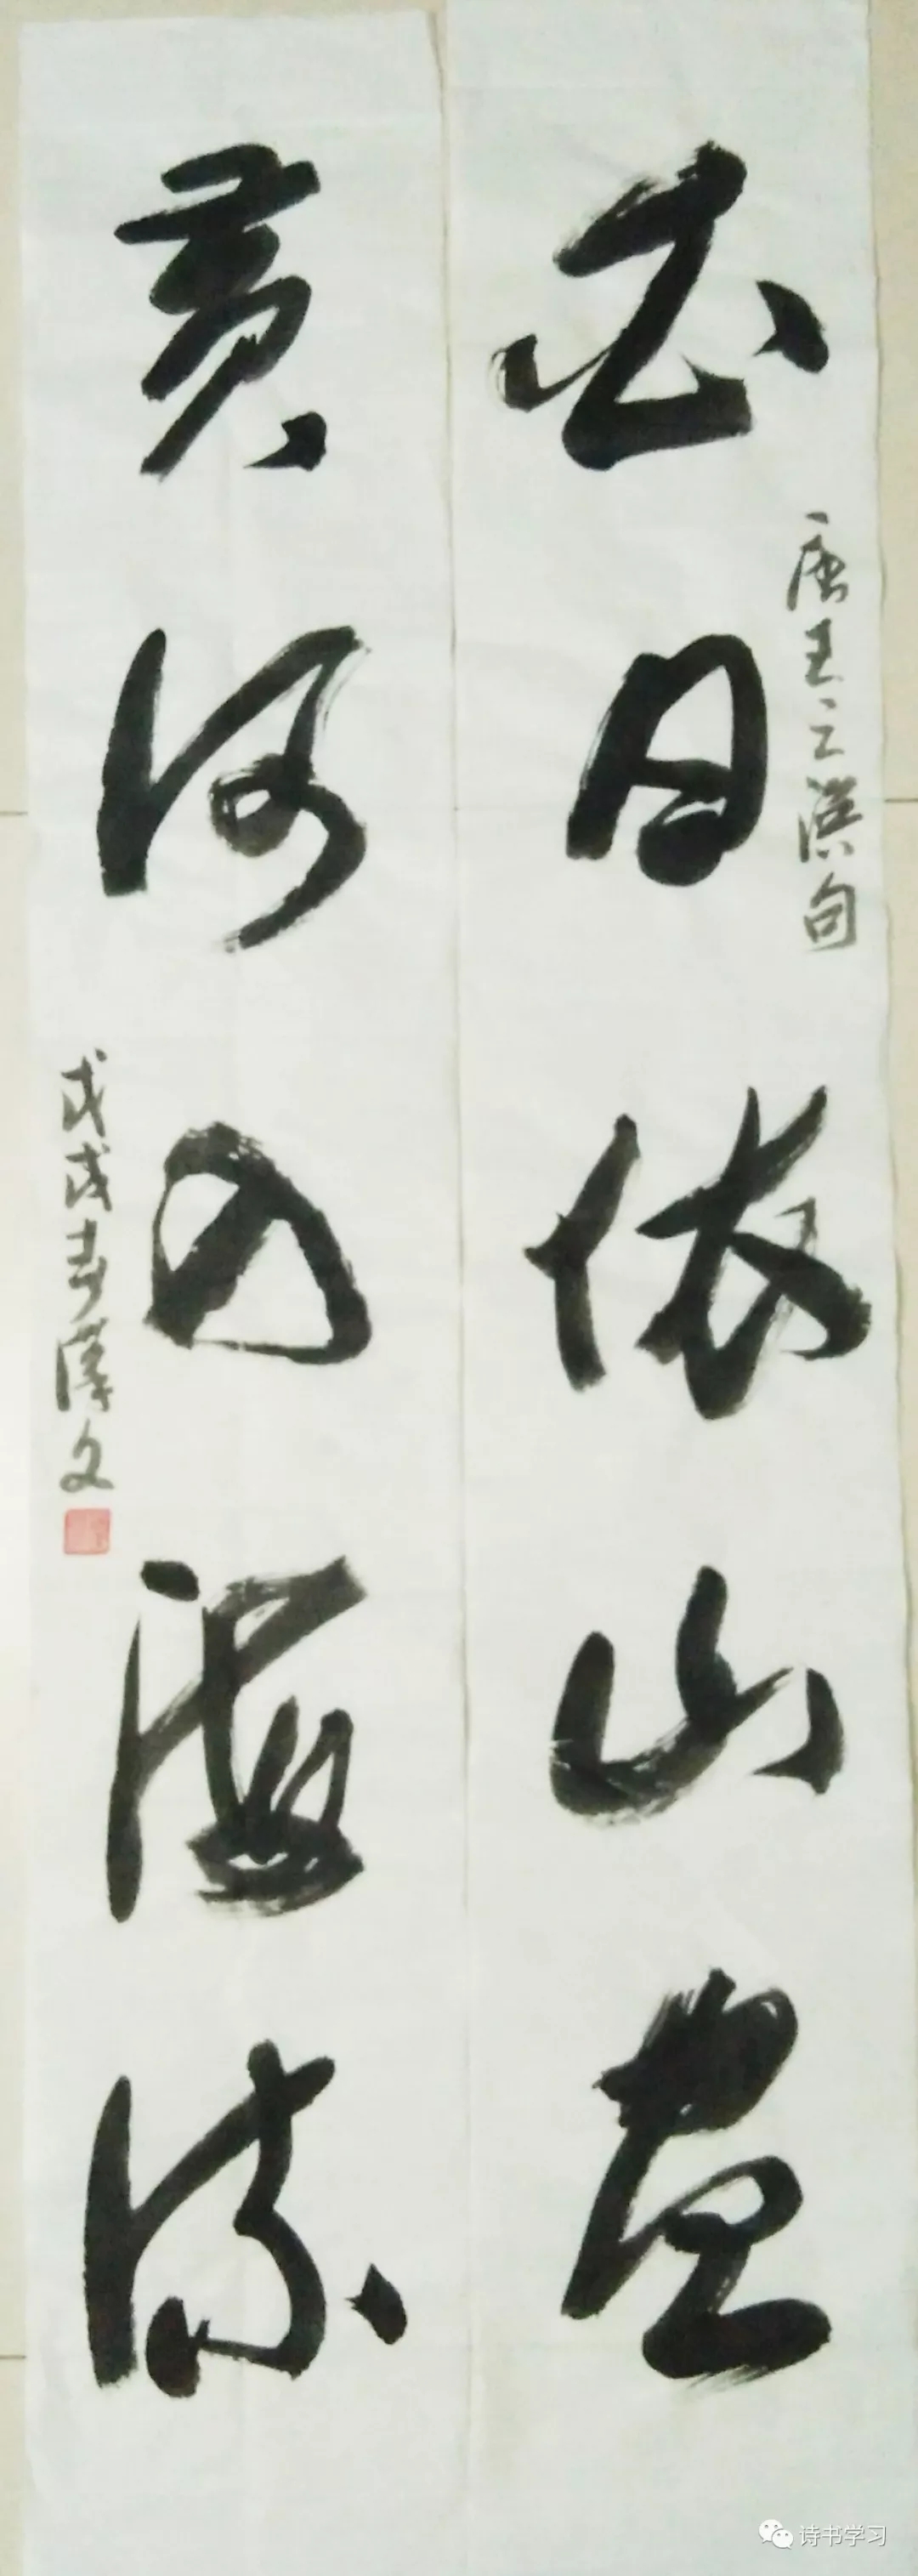 唐王之渙句
白日依山盡
黄河入海流
戊戌春漢文
诗书学习